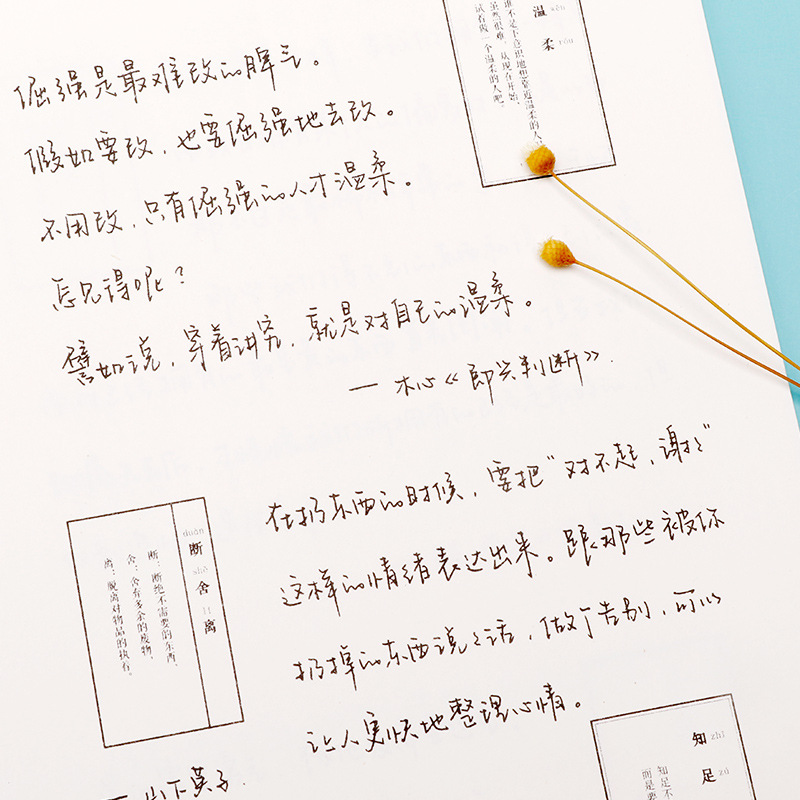 倔强是最难改的脾气。
假如要改，也要倔强地去改。
不用改，只有倔强的人才温柔。
怎见得呢？
譬如说，穿着讲究，就是对自己的温柔。
— 木心《即兴判断》.
温 wēn
柔 róu
谁不是下意识地想靠近温柔的人，
虽然很难，从现在开始，
试着做一个温柔的人吧。
在扔东西的时候，要把“对不起，谢谢”
这样的情绪表达出来。跟那些被你
扔掉的东西说说话，做个告别，可以
让人更快地整理心情。
— 山下英子.
duàn
断
shě
舍
lí
离
断：断绝不需要的东西。
舍：舍弃多余的废物。
离：脱离对物品的执着。
知 zhī
足 zú
知足不
而是要